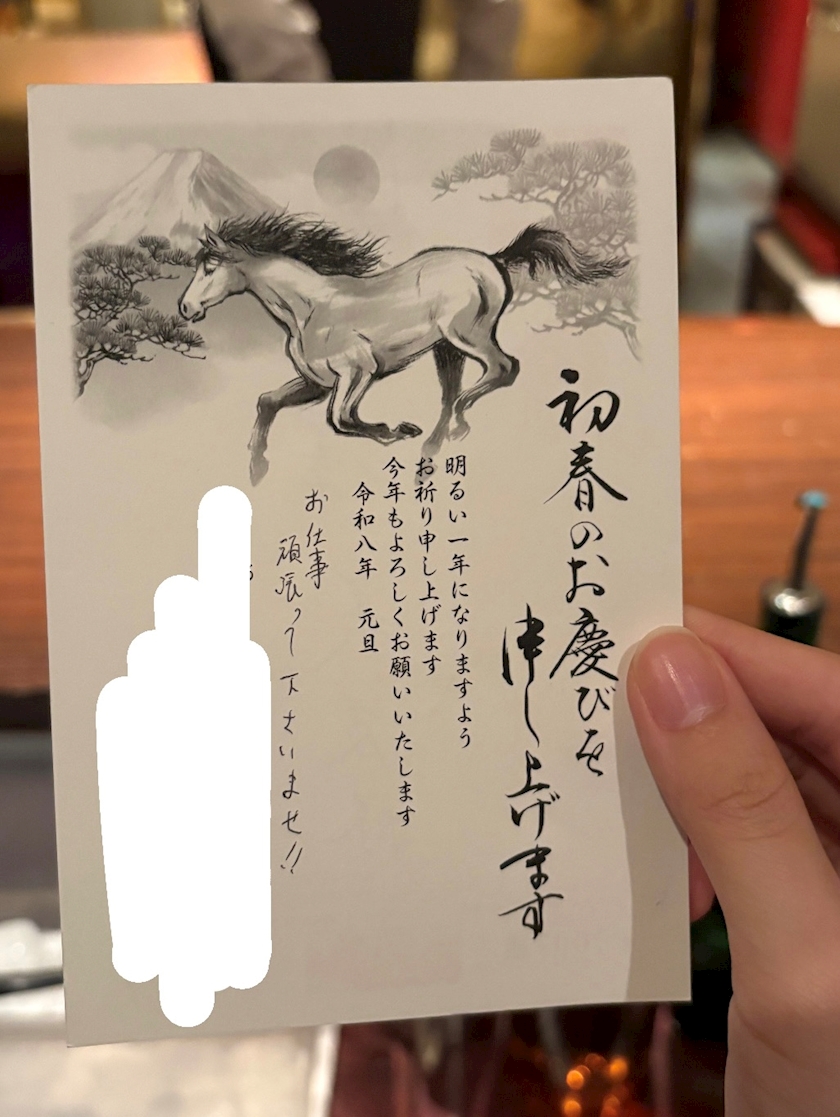 初春のお慶びを
申し上げます
明るい一年になりますよう
お祈り申し上げます
今年もよろしくお願いいたします
令和八年　元旦
お仕事
頑張って下さいませ!!